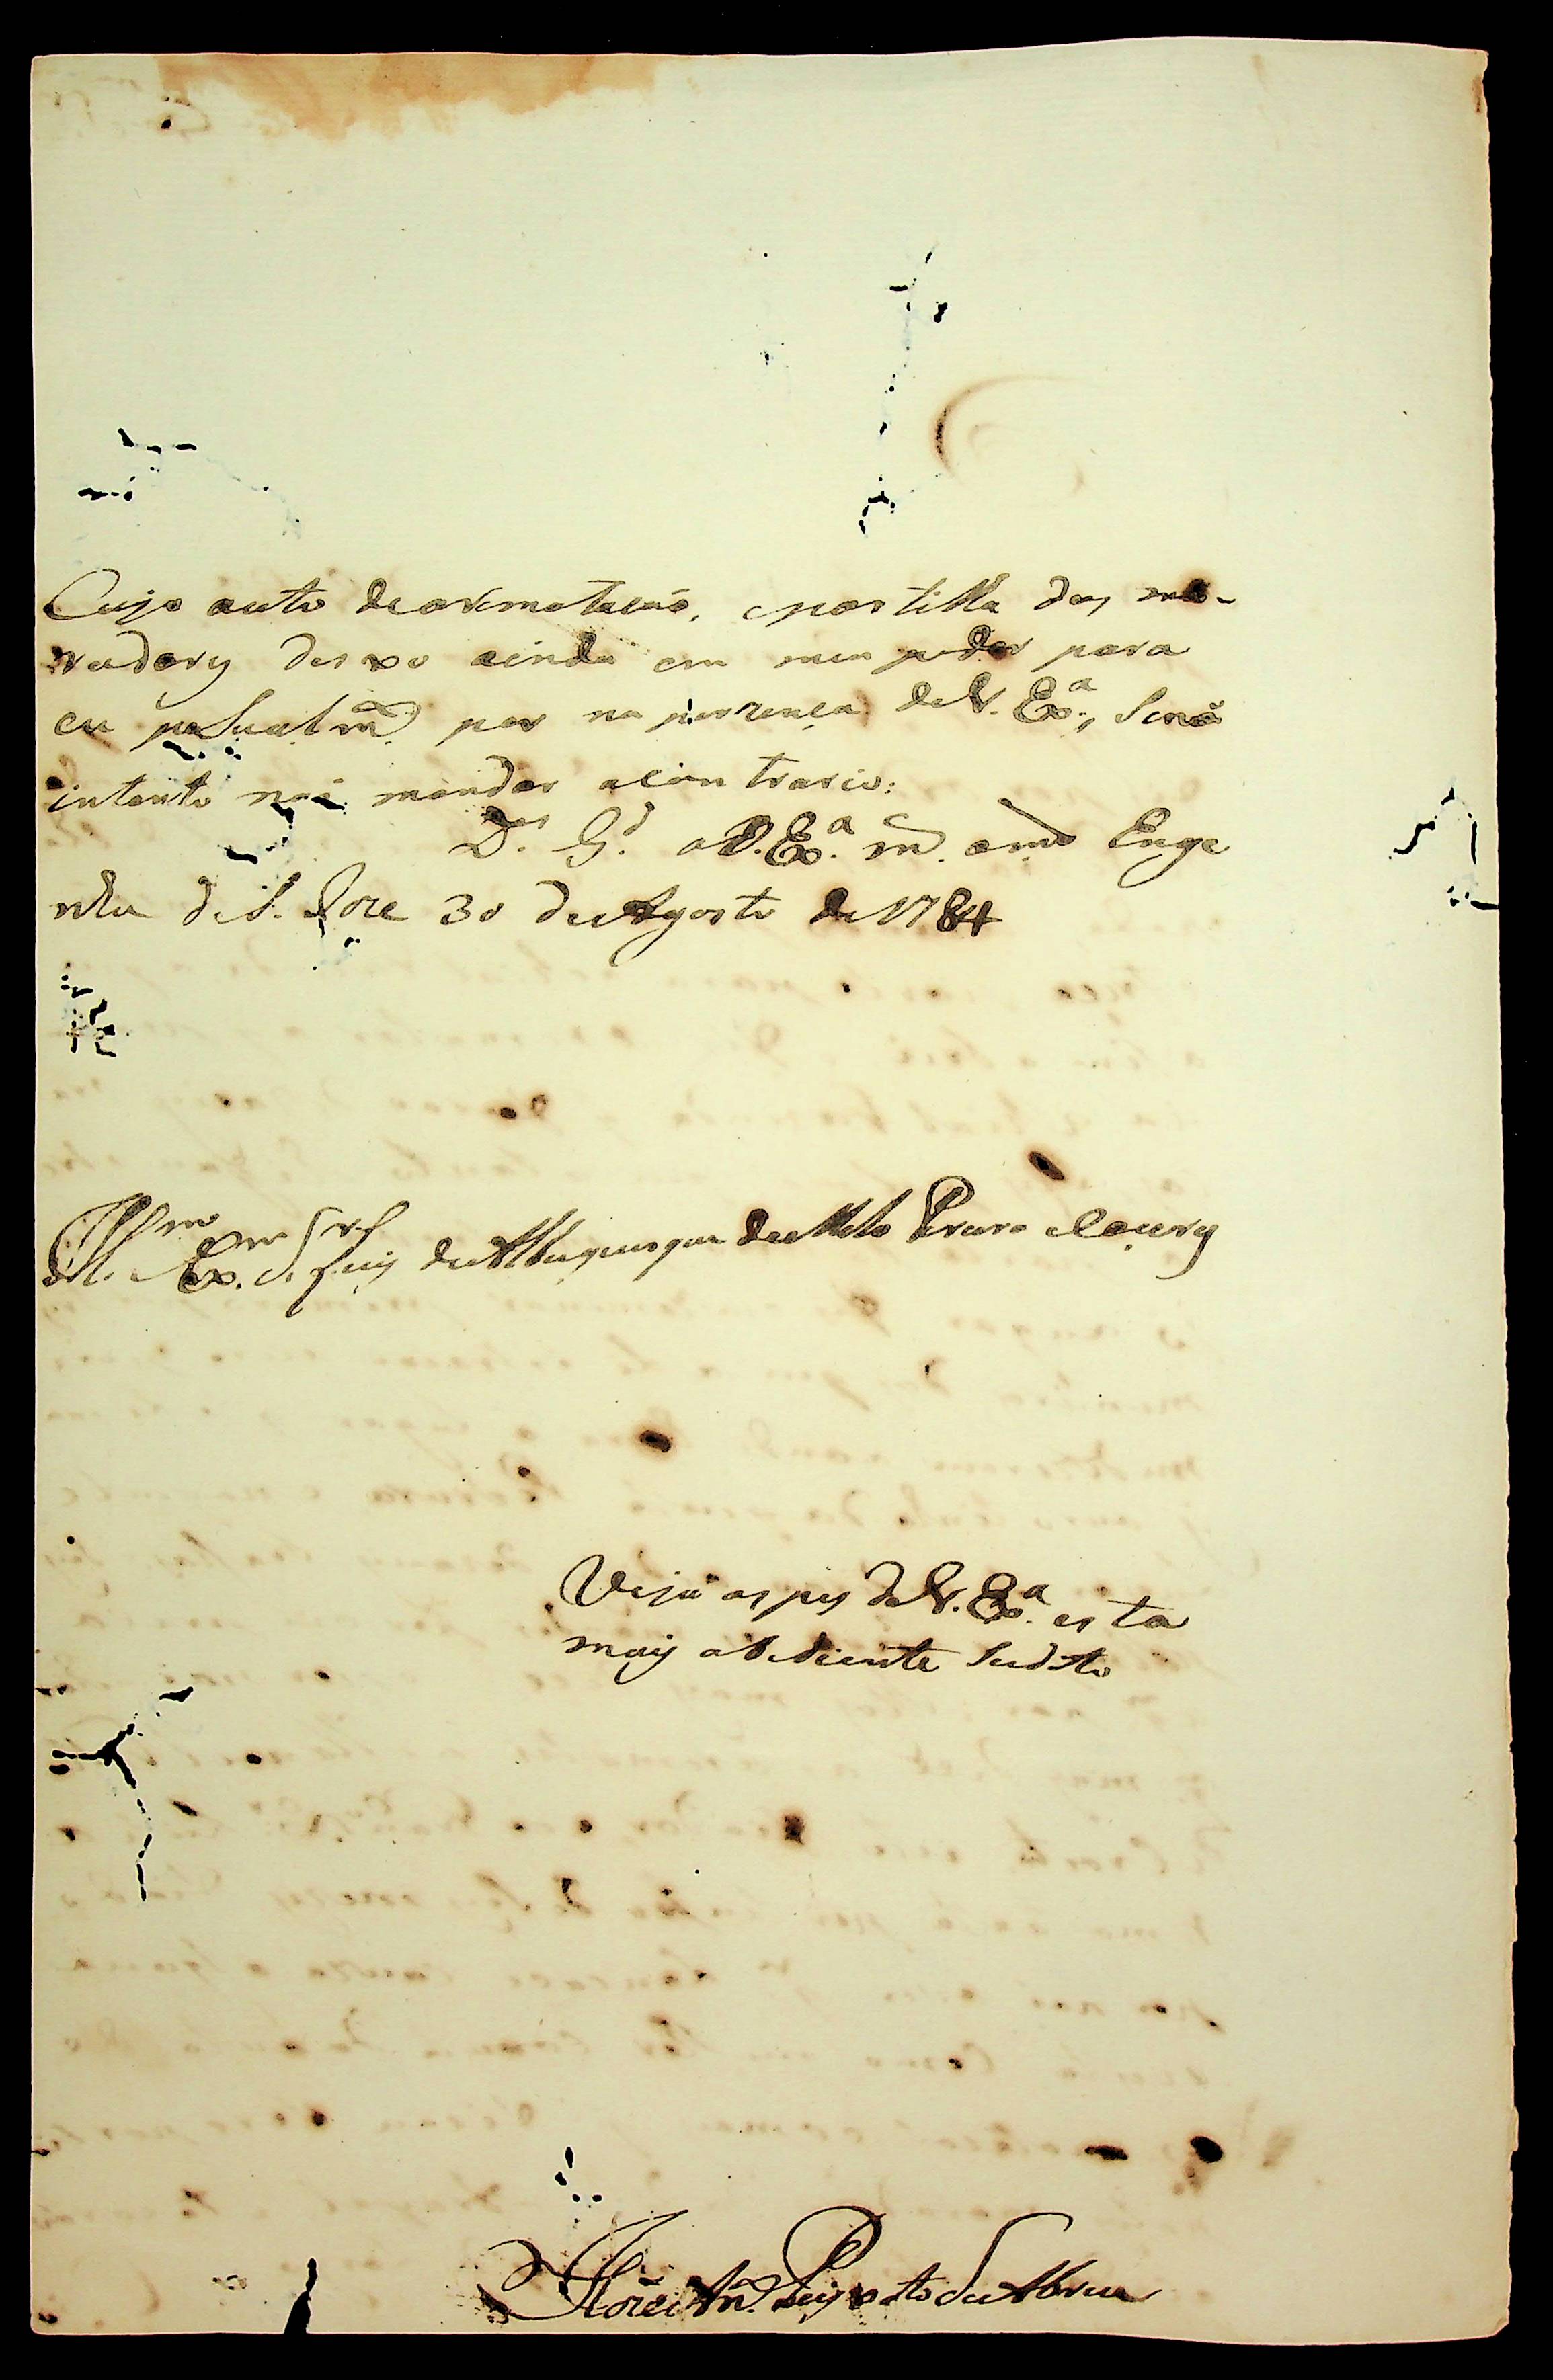 Cujo auto dearematacaõ, epartilha dos mo-
radores deixo ainda em meu poder para
eu pesualm.te por na prezença deV. Ex.a, Senaõ
intanto naõ mandar acõn trario:
D.s G.d aV. Ex.a m.s an.s Enge
nho deS. Joze 30 deAgosto de 1784
Ill.mo Ex.mo S.r Luis deAlbuquerque deMelo Pereira eCaceres
Veja os pes deV. Ex.a esta
mais obediente Sudito
Joze An.to Peixoto deAbreu